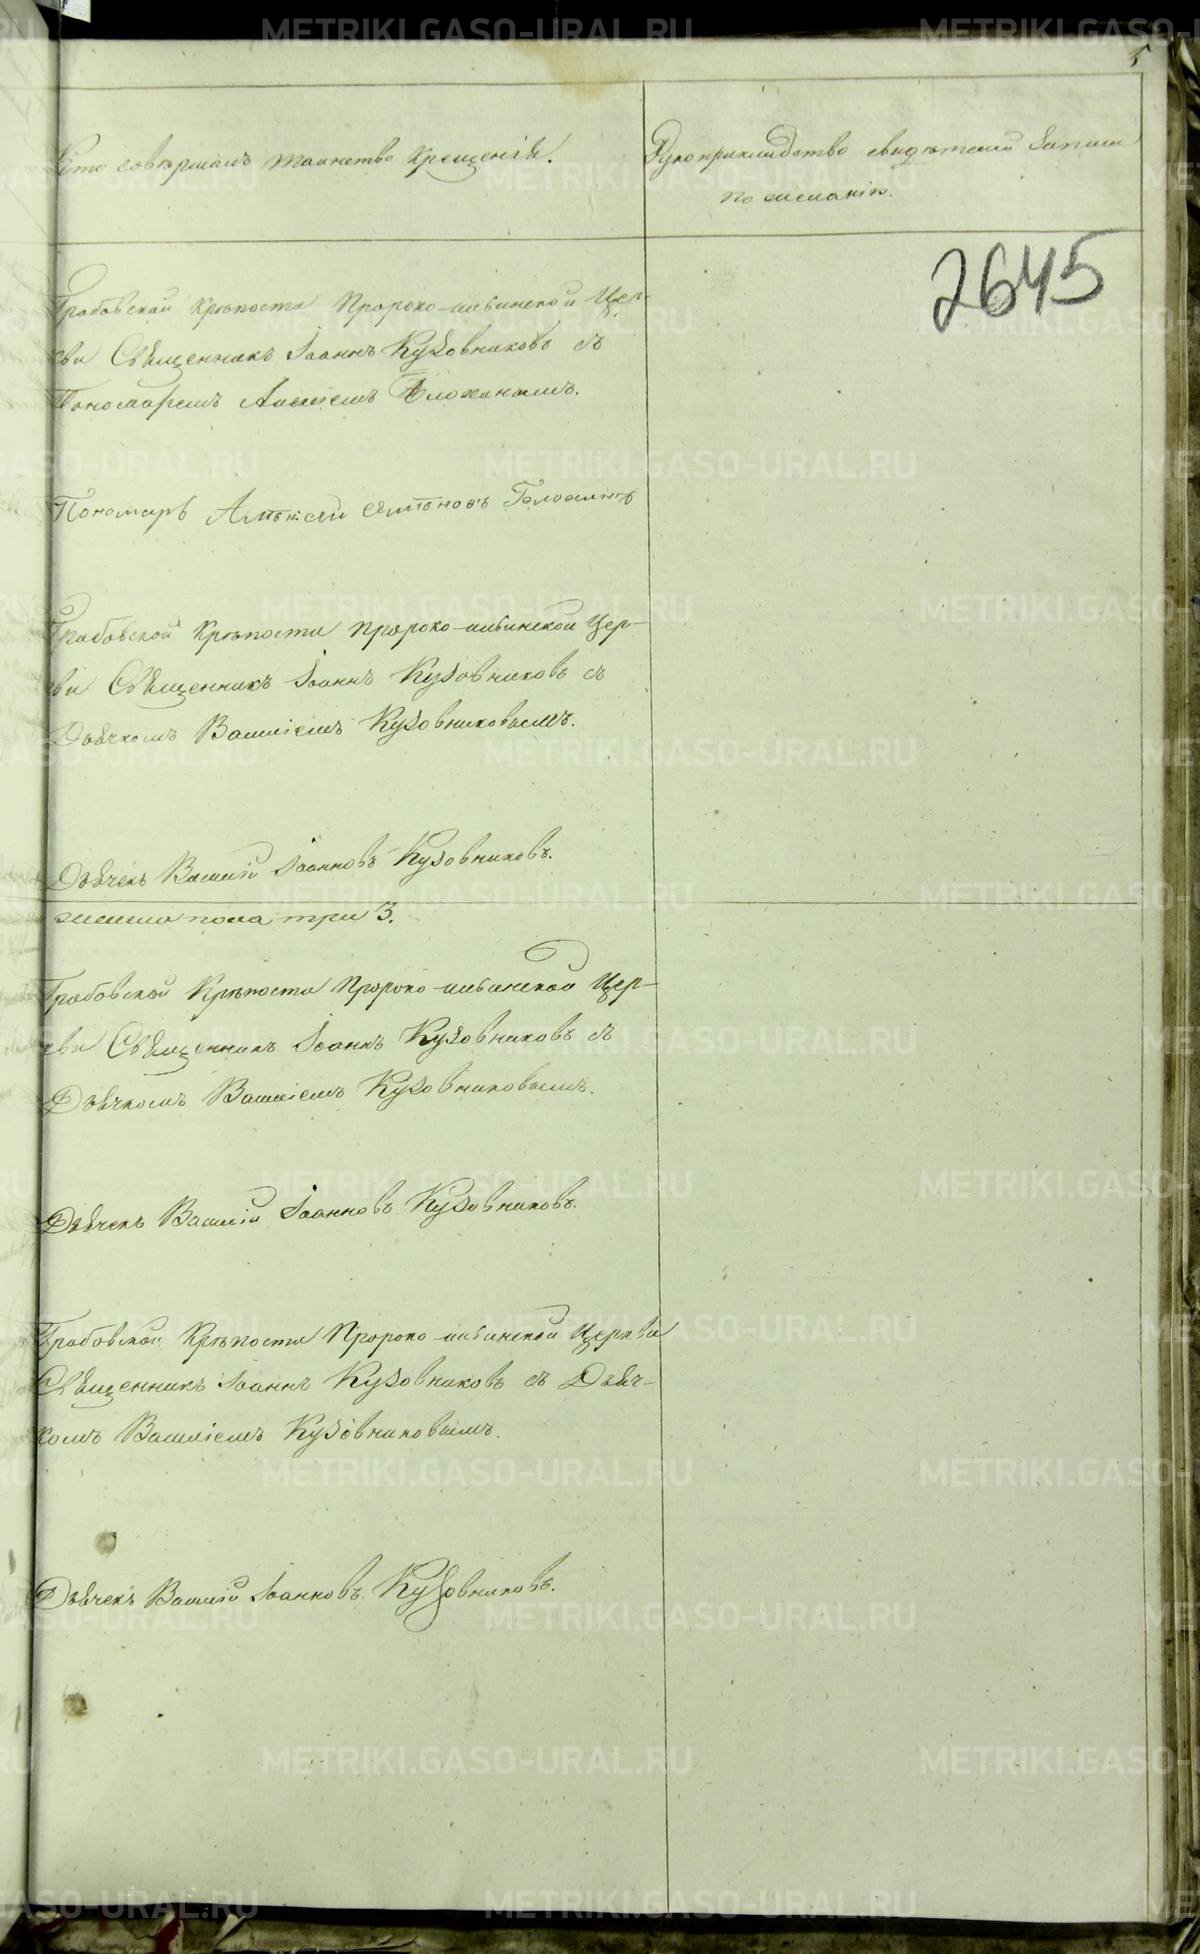 5
Кто совершалъ таинство крещенія.
Рукоприкладство свидѣтелей записи
по желанію.
2645
Грабовской Крѣпости Пророко-ильинской Цер-
кви Священникъ Іоаннъ Кузовниковъ съ
Пономаремъ Алексіемъ
Пономарь Алѣксѣй
Грабовской Крѣпости пророко-ильинской Цер-
кви Священникъ Іоаннъ Кузовниковъ съ
Дьячкомъ Василіемъ Кузовниковымъ.
Дьячекъ Василій Іоанновъ Кузовниковъ.
пола три 3.
Грабовской Крѣпости Пророко-ильинской Цер-
кви Священникъ Іоаннъ Кузовниковъ съ
Дьячкомъ Василіемъ Кузовниковымъ.
Дьячекъ Василій Іоанновъ Кузовниковъ.
Грабовской Крѣпости Пророко-ильинской Церкви
Священникъ Іоаннъ Кузовниковъ съ Дьяч-
комъ Василіемъ Кузовниковымъ.
Дьячекъ Василій Іоанновъ Кузовниковъ.
METRIKI.GASO-URAL.RU